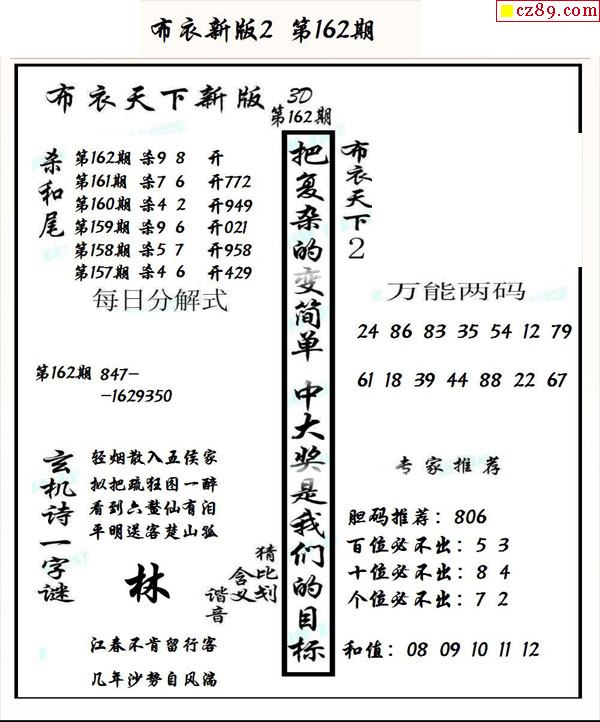 cz89.com
布衣新版2 第162期
布衣天下新版 3D
第162期
杀和尾
第162期 杀9 8 开
第161期 杀7 6 开772
第160期 杀4 2 开949
第159期 杀9 6 开021
第158期 杀5 7 开958
第157期 杀4 6 开429
每日分解式
第162期 847-
-1629350
玄机诗一字谜
轻烟散入五侯家
拟把疏狂图一醉
看到六鳌仙有泪
平明送客楚山孤
林
猜比划
含义
谐音
江春不肯留行客
几年沙势自风湍
把复杂的变简单 中大奖是我们的目标
布衣天下2
万能两码
24 86 83 35 54 12 79
61 18 39 44 88 22 67
专家推荐
胆码推荐：806
百位必不出：5 3
十位必不出：8 4
个位必不出：7 2
和值：08 09 10 11 12